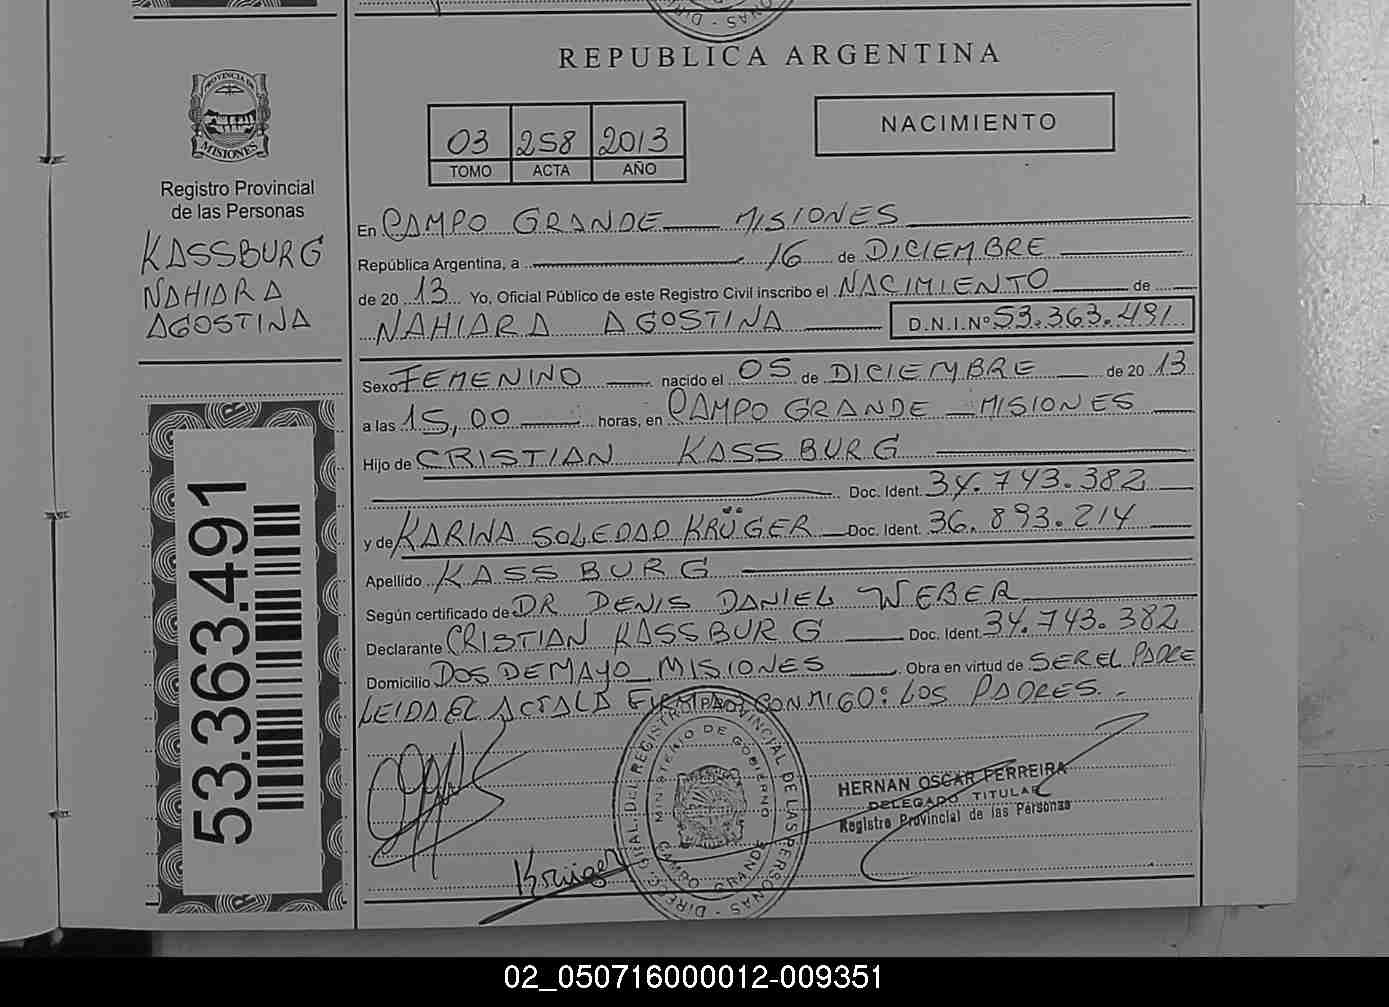 REPUBLICA ARGENTINA
PROVINCIA DE
MISIONES
Registro Provincial
de las Personas
KASSBURG
NAHIARA
AGOSTINA
03 258 2013
TOMO ACTA AÑO
NACIMIENTO
En CAMPO GRANDE MISIONES
República Argentina, a 16 de DICIEMBRE
de 2013 Yo, Oficial Público de este Registro Civil inscribo el NACIMIENTO de
NAHIARA AGOSTINA D.N.I.Nº 53.363.491
Sexo FEMENINO nacido el 05 de DICIEMBRE de 2013
a las 15,00 horas, en CAMPO GRANDE MISIONES
Hijo de CRISTIAN KASSBURG
Doc. Ident. 34.743.382
y de KARINA SOLEDAD KRÜGER Doc. Ident. 36.893.214
Apellido KASSBURG
Según certificado de DR DENIS DANIEL WEBER
Declarante CRISTIAN KASSBURG Doc. Ident. 34.743.382
Domicilio DOS DE MAYO MISIONES Obra en virtud de SER EL PADRE
LEIDA EL ACTA LA FIRMAN CONMIGO: LOS PADRES.-
53.363.491
Krüger
DIREC. GRAL. DEL REGISTRO PROVINCIAL DE LAS PERSONAS
MINISTERIO DE GOBIERNO
CAMPO GRANDE
HERNAN OSCAR FERREIRA
DELEGADO TITULAR
Registro Provincial de las Personas
02_050716000012-009351